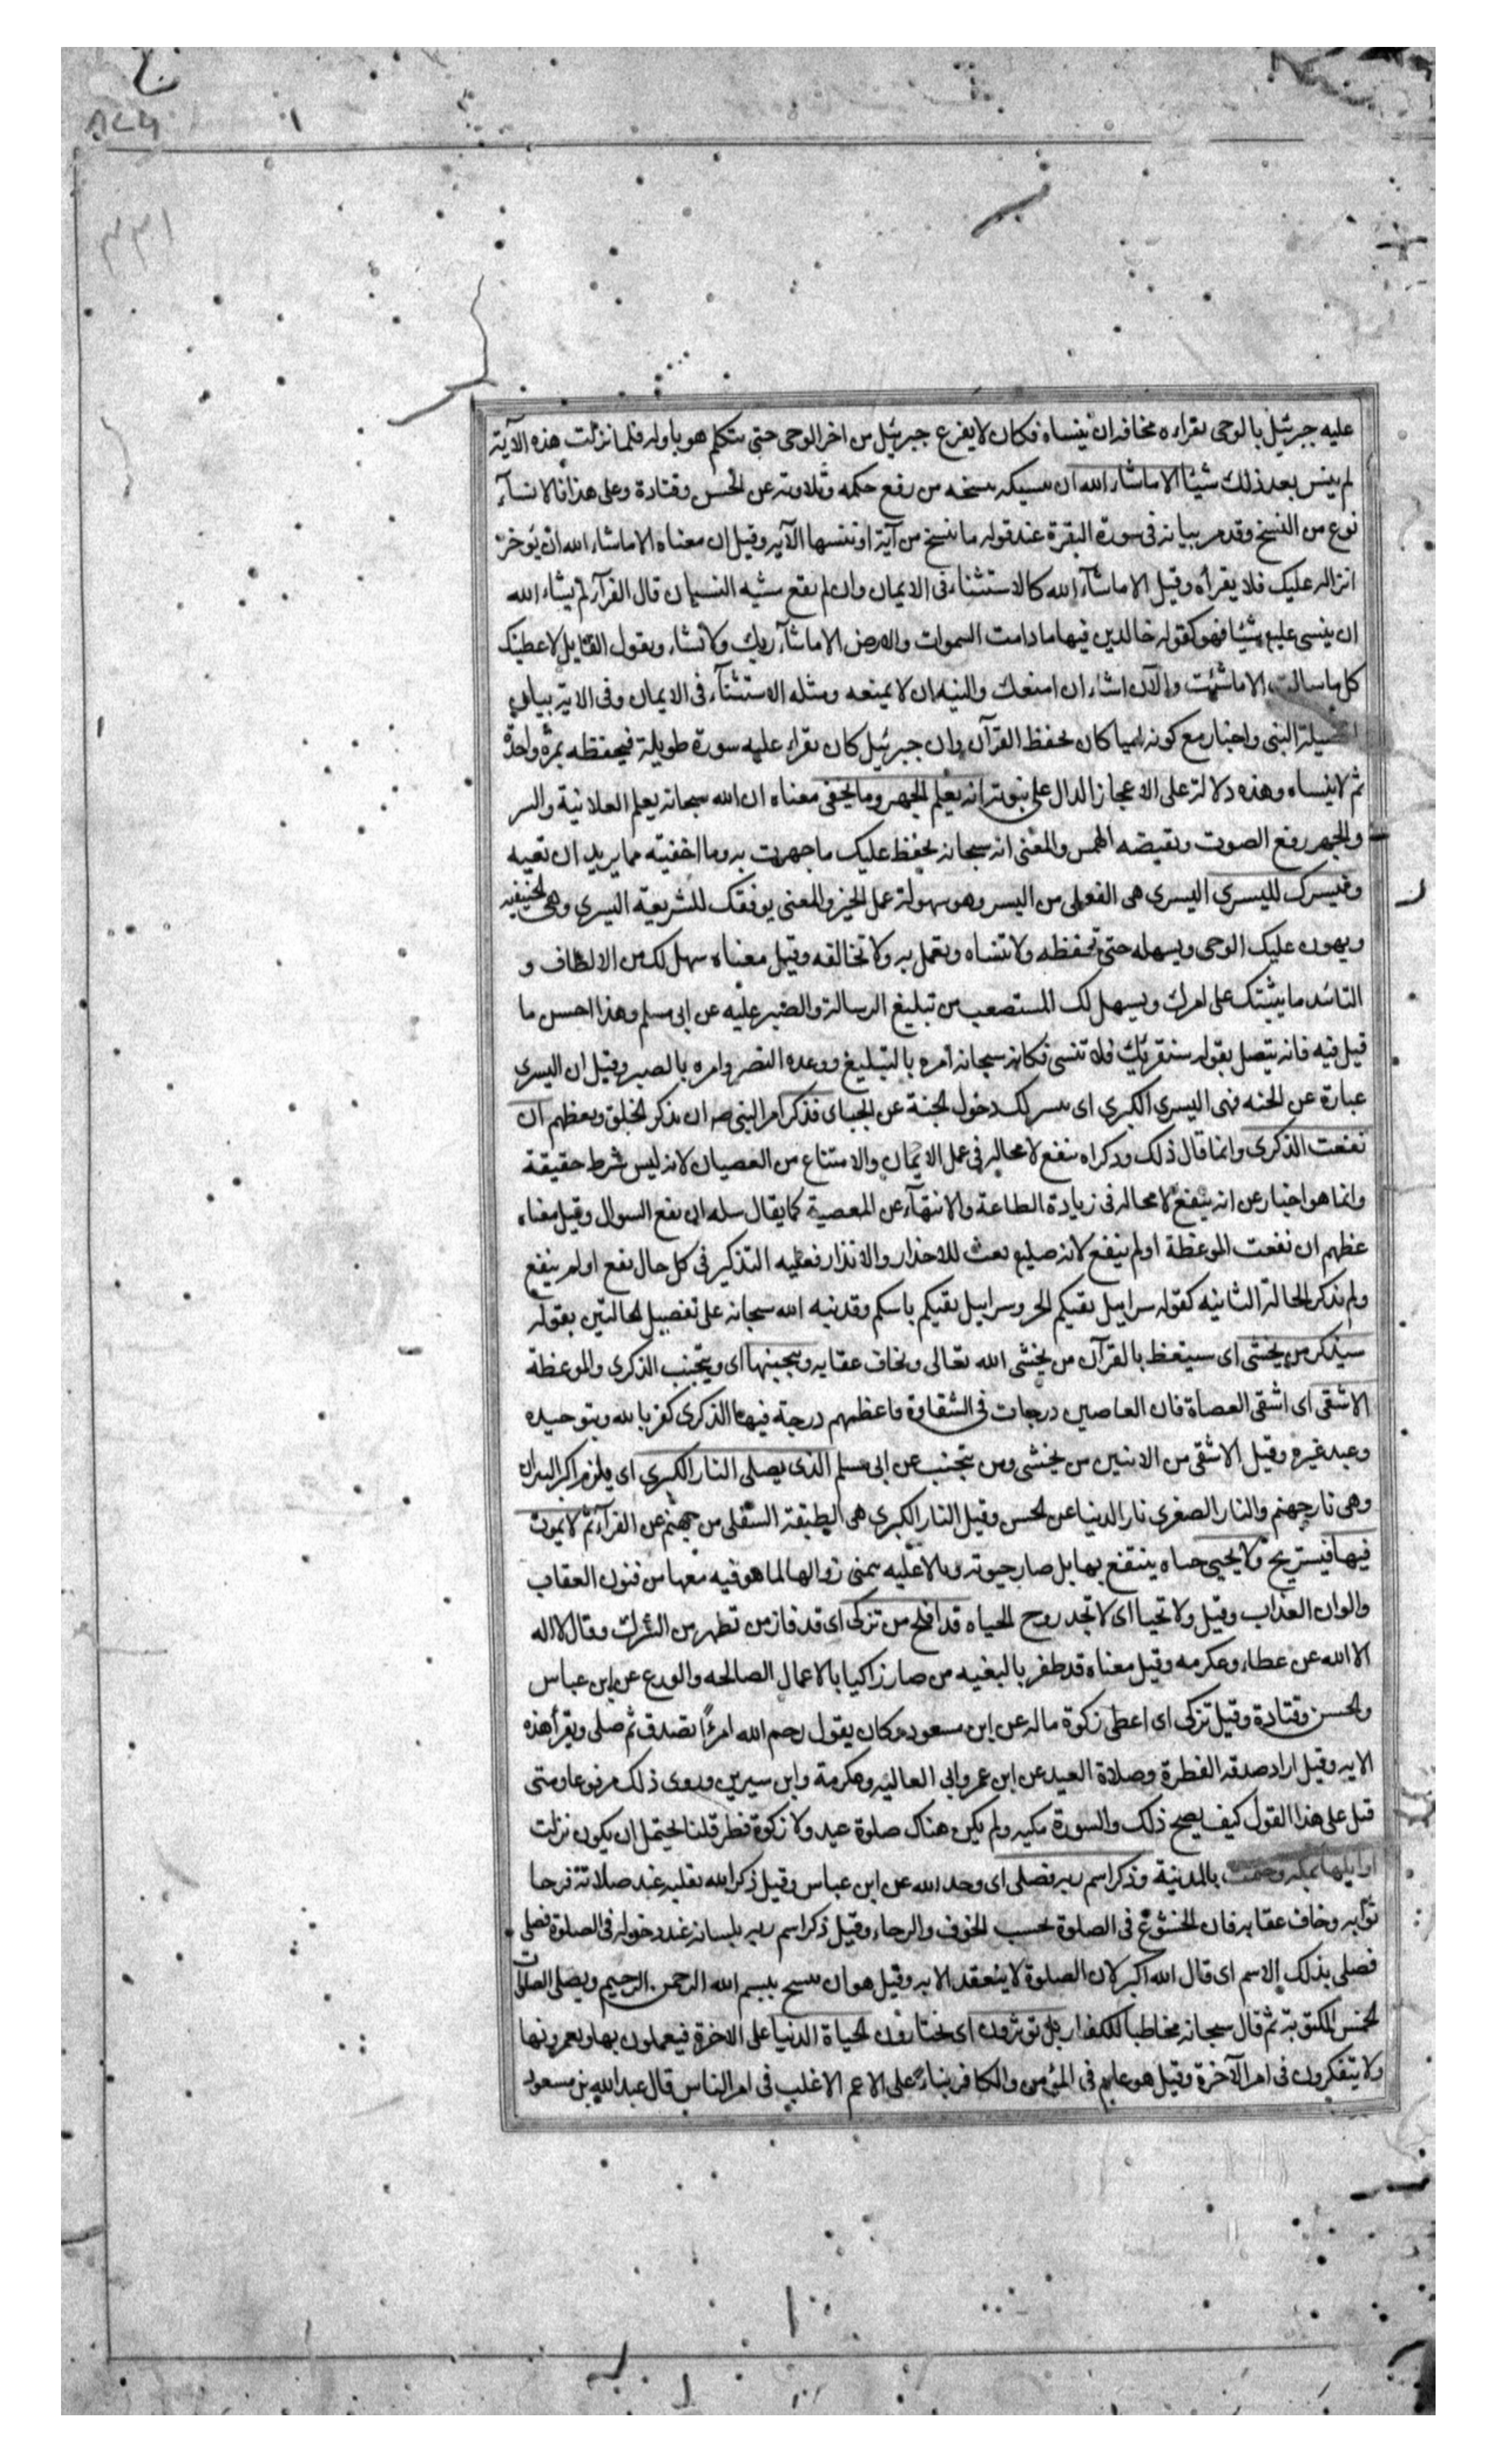 عليه جبرئيل بالوحى يقراءه مخافه ان ينساه فكان لا يفرغ جبرئيل من اخر الوحى حتى يتكلم هو باوله فلما نزلت هذه الآية
لم ينس بعد ذلك شيئا الا ما شاء الله ان ينسيكه بنسخه من رفع حكمه وتلاوته عن الحسن وقتادة وعلى هذا فالانساء
نوع من النسخ وقد مر بيانه فى سورة البقرة عند قوله ما ننسخ من آية او ننسها الآيه وقيل ان معناه الا ما شاء الله ان يؤخر
انزاله عليك فلا يقرأه وقيل الا ما شآء الله كالاستثناء فى الايمان وان لم يقع مشيه النسيان قال الفرآء لم يشاء الله
ان ينسى عليم شيئا فهو كقوله خالدين فيها ما دامت السموات والارض الا ما شآء ربك ولا تشاء ويقول القايل لاعطينك
كل ما سالت الا ما شئت والا ان اشاء ان امنعك والنيه ان لا يمنعه ومثله الاستثنآء فى الايمان وفى الاية بيان
لفضيلة النبى واخبار مع كونه اميا كان يحفظ القرآن وان جبرئيل كان يقراء عليه سورة طويلة فيحفظه بمرة واحدة
ثم لا ينساه وهذه دلالة على الاعجاز الدال على نبوته انه يعلم الجهر وما يخفى معناه ان الله سبحانه يعلم العلانية والسر
والجهر رفع الصوت ونقيضه الهمس والمعنى انه سبحانه يحفظ عليك ما جهرت به وما اخفيته مما يريد ان تعيه
ونيسرك لليسرى اليسرى هى الفعلى من اليسر وهو سهولة عمل الخير والمعنى يوفقك للشريعة اليسرى وهى الحنيفيه
ويهون عليك الوحى ويسهله حتى تحفظه ولا تنساه وتعمل به ولا تخالفه وقيل معناه سهل لك من الالطاف و
التائيد ما يثبتك على امرك ويسهل لك المستصعب من تبليغ الرسالة والصبر عليه عن ابى مسلم وهذا احسن ما
قيل فيه فانه يتصل بقوله سنقرئك فلا تنسى فكانه سبحانه أمره بالتبليغ ووعده النصر وامره بالصبر وقيل ان اليسرى
عبارة عن الجنه فهى اليسرى الكبرى اى ييسر لك دخول الجنة عن الجباى فذكر امر النبى صه ان يذكر الخلق ويعظهم ان
نفعت الذكرى وانما قال ذلك وذكراه ينفع لا محاله فى عمل الايمان والامتناع من العصيان لانه ليس شرط حقيقة
وانما هو اخبار عن انه ينفع لا محاله فى زيادة الطاعة والانتهآء عن المعصية كما يقال سله ان نفع السوال وقيل معناه
عظهم ان نفعت الموعظة او لم ينفع لانه صليم بعث للاعذار والانذار فعليه التذكير فى كل حال نفع او لم ينفع
ولم يذكر الحالة الثانيه كقوله سرابيل تقيكم الحر وسرابيل تقيكم باسكم وقد نبه الله سبحانه على تفصيل الحالتين بقوله
سيذكر من يخشى اى سيتعظ بالقرآن من يخشى الله تعالى ويخاف عقابه ويتجنبها اى ويتجنب الذكرى والموعظة
الاشقى اى اشقى العصاة فان العاصين درجات فى الشقاوة فاعظمهم درجة فيها الذكرى كفر بالله وبتوحيده
وعبد غيره وقيل الاشقى من الاثنين من يخشى ومن يتجنب عن ابى مسلم الذى يصلى النار الكبرى اى يلزم اكبر النيران
وهى نار جهنم والنار الصغرى نار الدنيا عن الحسن وقيل النار الكبرى هى الطبقة السفلى من جهنم عن الفرآء ثم لا يموت
فيها فيستريح ولا يحيى حياه ينتفع بها بل صار حيوته وبالا عليه يتمنى زوالها لما هو فيه معها من فنون العقاب
والوان العذاب وقيل ولا تحيا اى لا تجد روح الحياه قد افلح من تزكى اى قد فاز من تطهر من الشرك وقال لا اله
الا الله عن عطاء وعكرمه وقيل معناه قد ظفر بالبغيه من صار زاكيا بالاعمال الصالحه والورع عن ابن عباس
والحسن وقتادة وقيل تزكى اى اعطى زكوة ماله عن ابن مسعود وكان يقول رحم الله امرءًا تصدق ثم صلى ويقرأ هذه
الايه وقيل اراد صدقه الفطرة وصلاة العيد عن ابن عمر وابى العاليه وعكرمة وابن سيرين وروى ذلك مرفوعا ومتى
قيل على هذا القول كيف يصح ذلك والسورة مكيه ولم يكن هناك صلوة عيد ولا زكوة فطر قلنا يحتمل ان يكون نزلت
اوايلها بمكه وختمت بالمدينة وذكر اسم ربه فصلى اى وحد الله عن ابن عباس وقيل ذكر الله بقلبه عند صلاته فرجا
ثوابه وخاف عقابه فان الخشوع فى الصلوة بحسب الخوف والرجاء وقيل ذكر اسم ربه بلسانه عند دخوله فى الصلوة فصلى
فصلى بذلك الاسم اى قال الله اكبر لان الصلوة لا ينعقد الا به وقيل هو ان يفتتح ببسم الله الرحمن الرحيم ويصلى الصلوات
الخمس المكتوبة ثم قال سبحانه مخاطبا للكفار بل تؤثرون اى يختارون الحياة الدنيا على الاخرة فيعملون بها ويعمرونها
ولا يتفكرون فى امر الآخرة وقيل هو عام فى المؤمن والكافر بناء على الاعم الاغلب فى امر الناس قال عبد الله بن مسعود